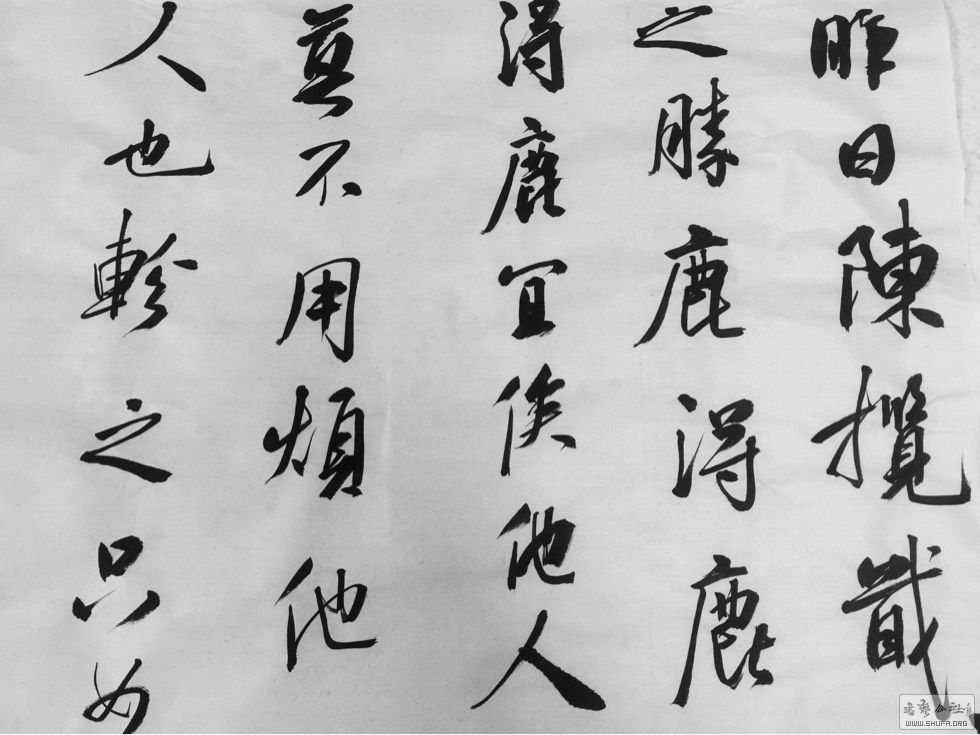 昨日陳攬戢
之勝鹿得鹿
得鹿宜俟他人
不用煩他
人也軫之只如
WWW.SHUFA.ORG